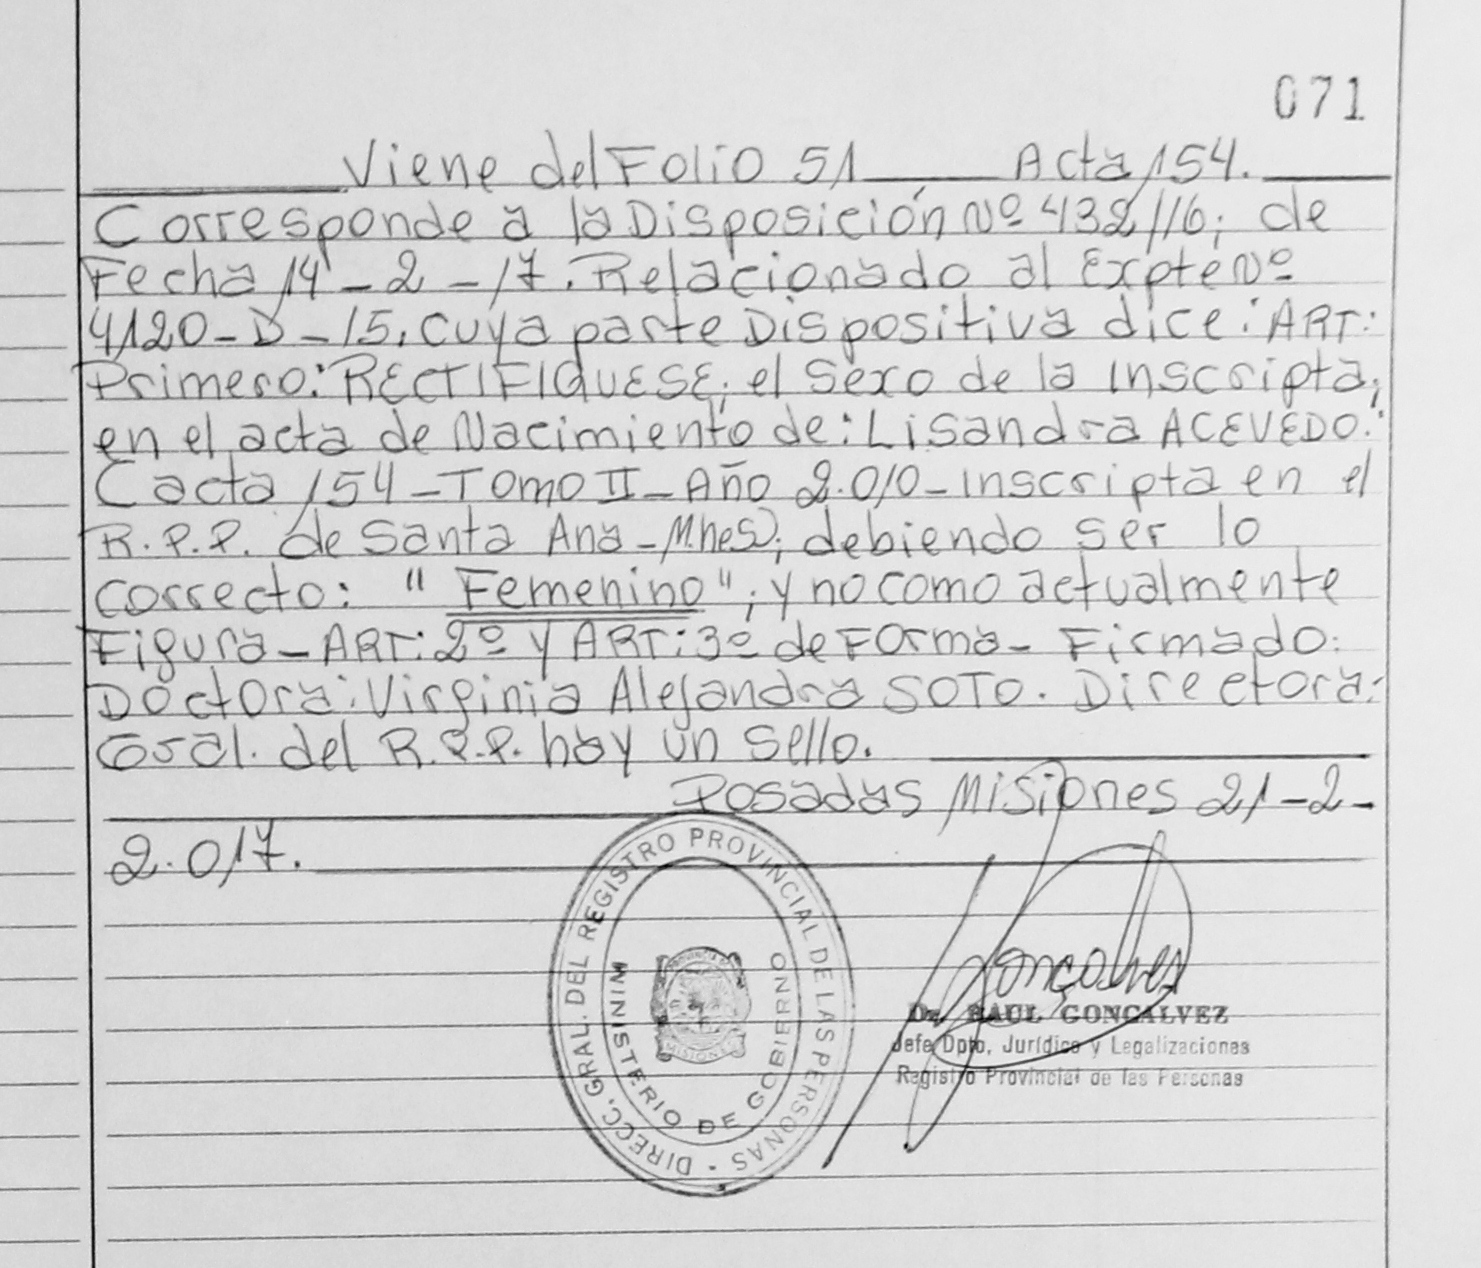 071
Viene del Folio 51 Acta 154.
Corresponde a la Disposición Nº 432/16; de
Fecha 14-2-17. Relacionado al Expte Nº
4120-D-15. cuya parte Dispositiva dice: ART:
Primero: RECTIFIQUESE; el sexo de la Inscripta;
en el acta de Nacimiento de: Lisandra ACEVEDO.
(acta 154-Tomo II-Año 2.010-Inscripta en el
R.P.P. de Santa Ana-Mnes); debiendo ser lo
correcto: "Femenino"; y no como actualmente
Figura-ART: 2º y ART: 3º de Forma- Firmado:
Doctora: Virginia Alejandra SOTO. Directora:
Gral. del R.P.P. hay un sello.
Posadas Misiones 21-2-
2.017.
DIRECC. GRAL. DEL REGISTRO PROVINCIAL DE LAS PERSONAS
MINISTERIO DE GOBIERNO
PROVINCIA DE
MISIONES
Gonçalvez
Dr. RAUL GONCALVEZ
Jefe Dpto. Jurídico y Legalizaciones
Registro Provincial de las Personas